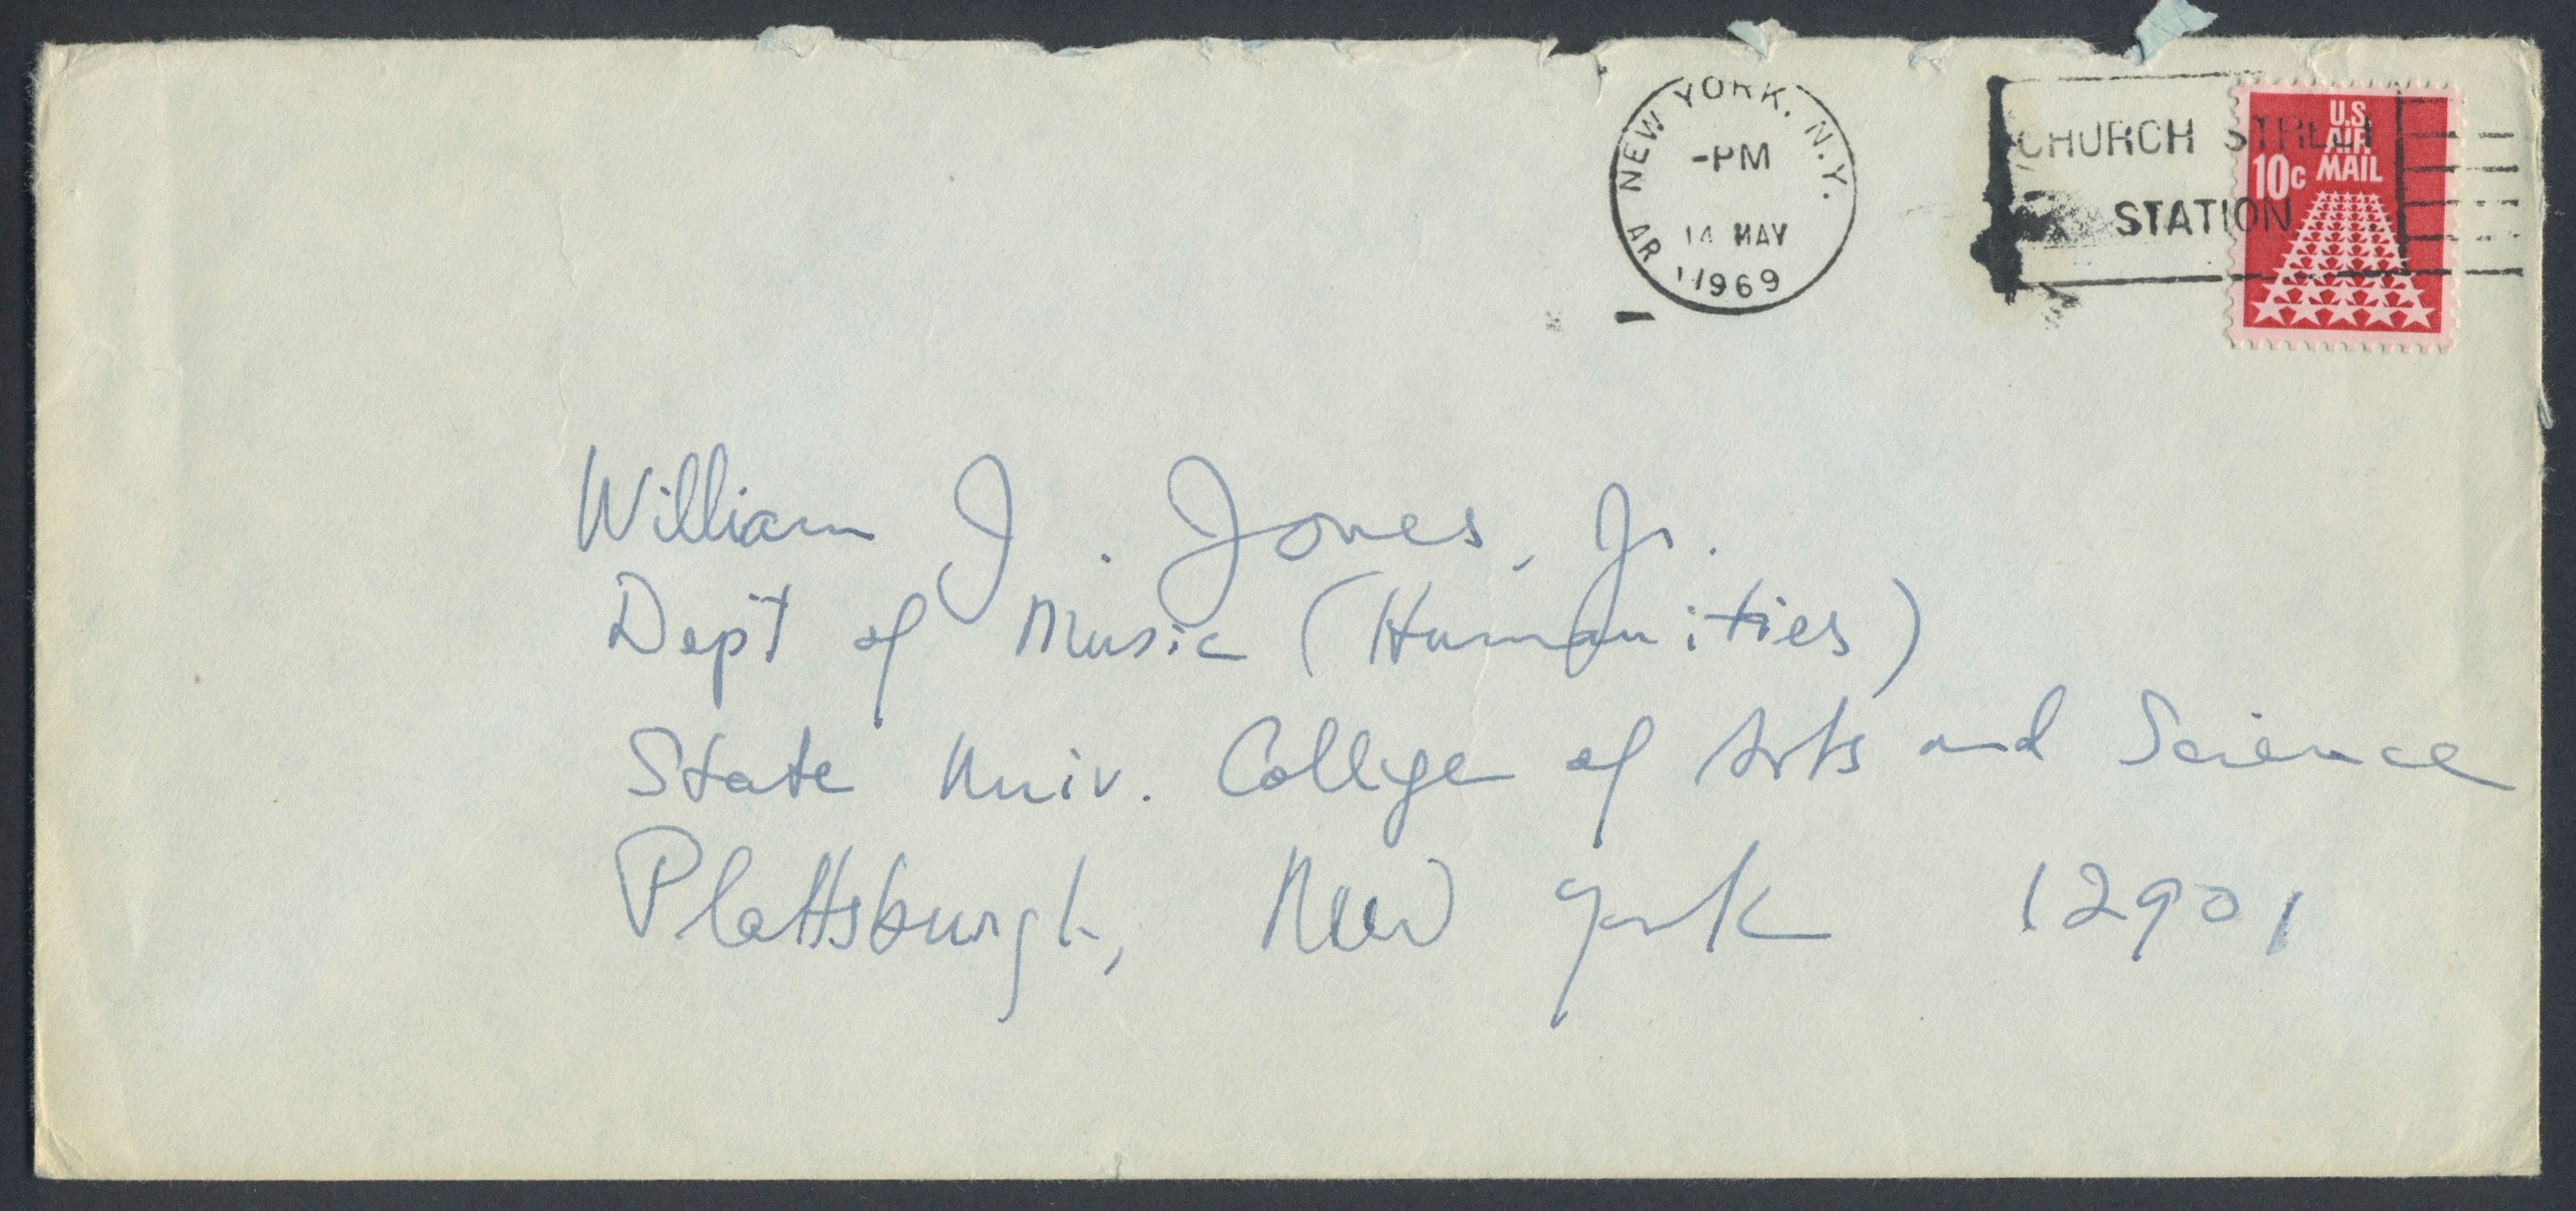 NEW YORK, N.Y.
-PM
14 MAY
AR 1969
CHURCH STREET
STATION
U.S.
AIR
10c MAIL
William J. Jones, Jr.
Dept of Music (Humanities)
State Univ. College of Arts and Science
Plattsburgh, New York 12901